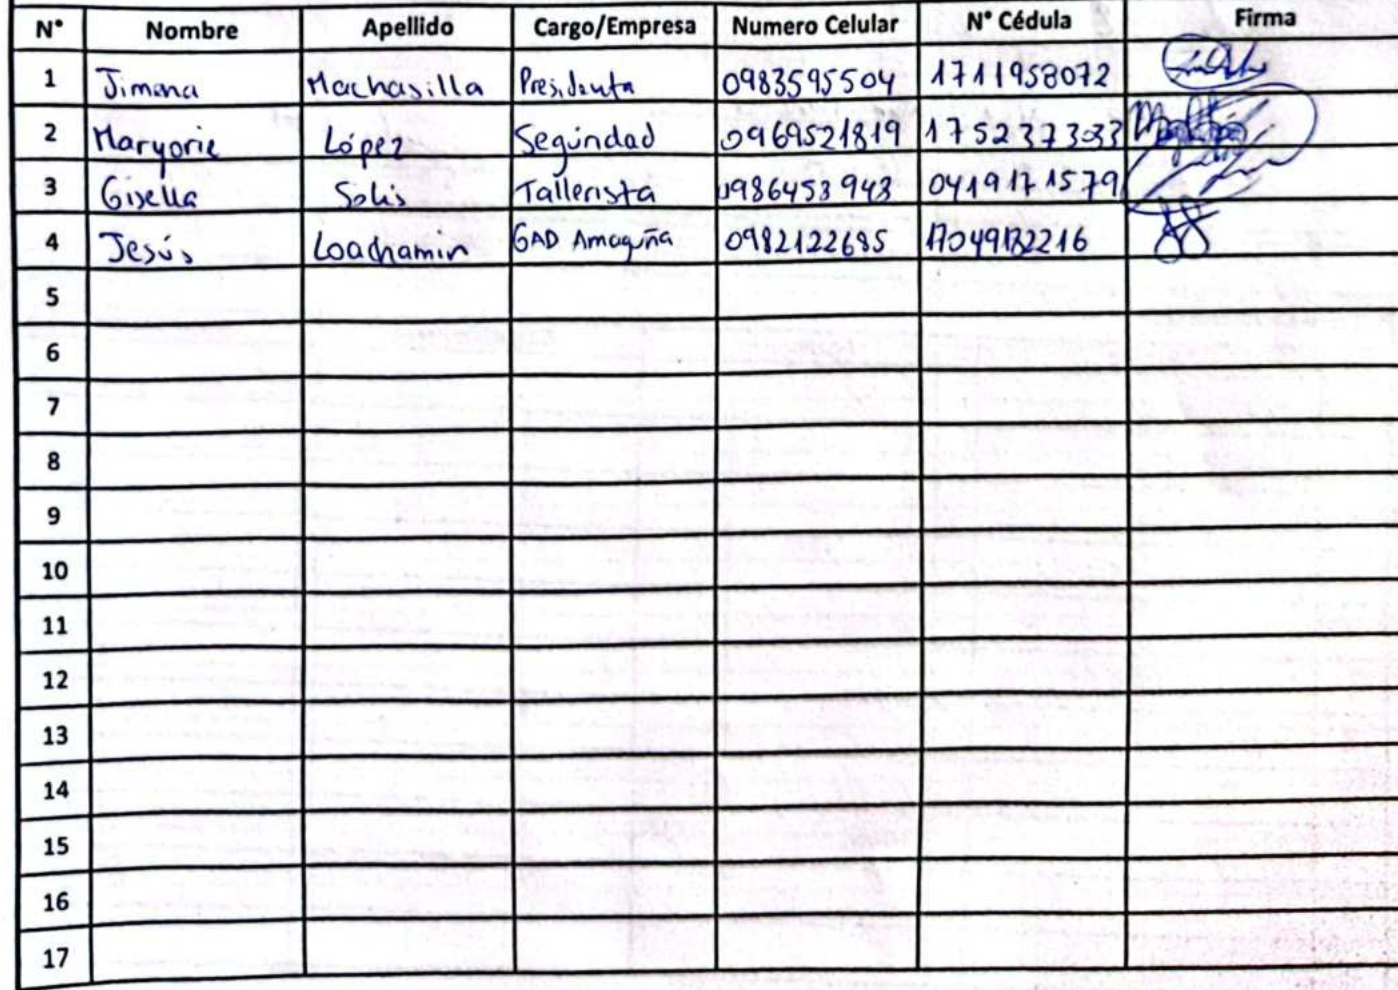 N° Nombre Apellido Cargo/Empresa Numero Celular N° Cédula Firma
1 Jimena Machasilla Presidenta 0983595504 1711958072
2 Maryorie López Segúridad 0969521819 1752373033
3 Gisella Solis Tallerista 0986453943 0419171579
4 Jesús Loachamin GAD Amaguña 0982122685
5
6
7
8
9
10
11
12
13
14
15
16
17